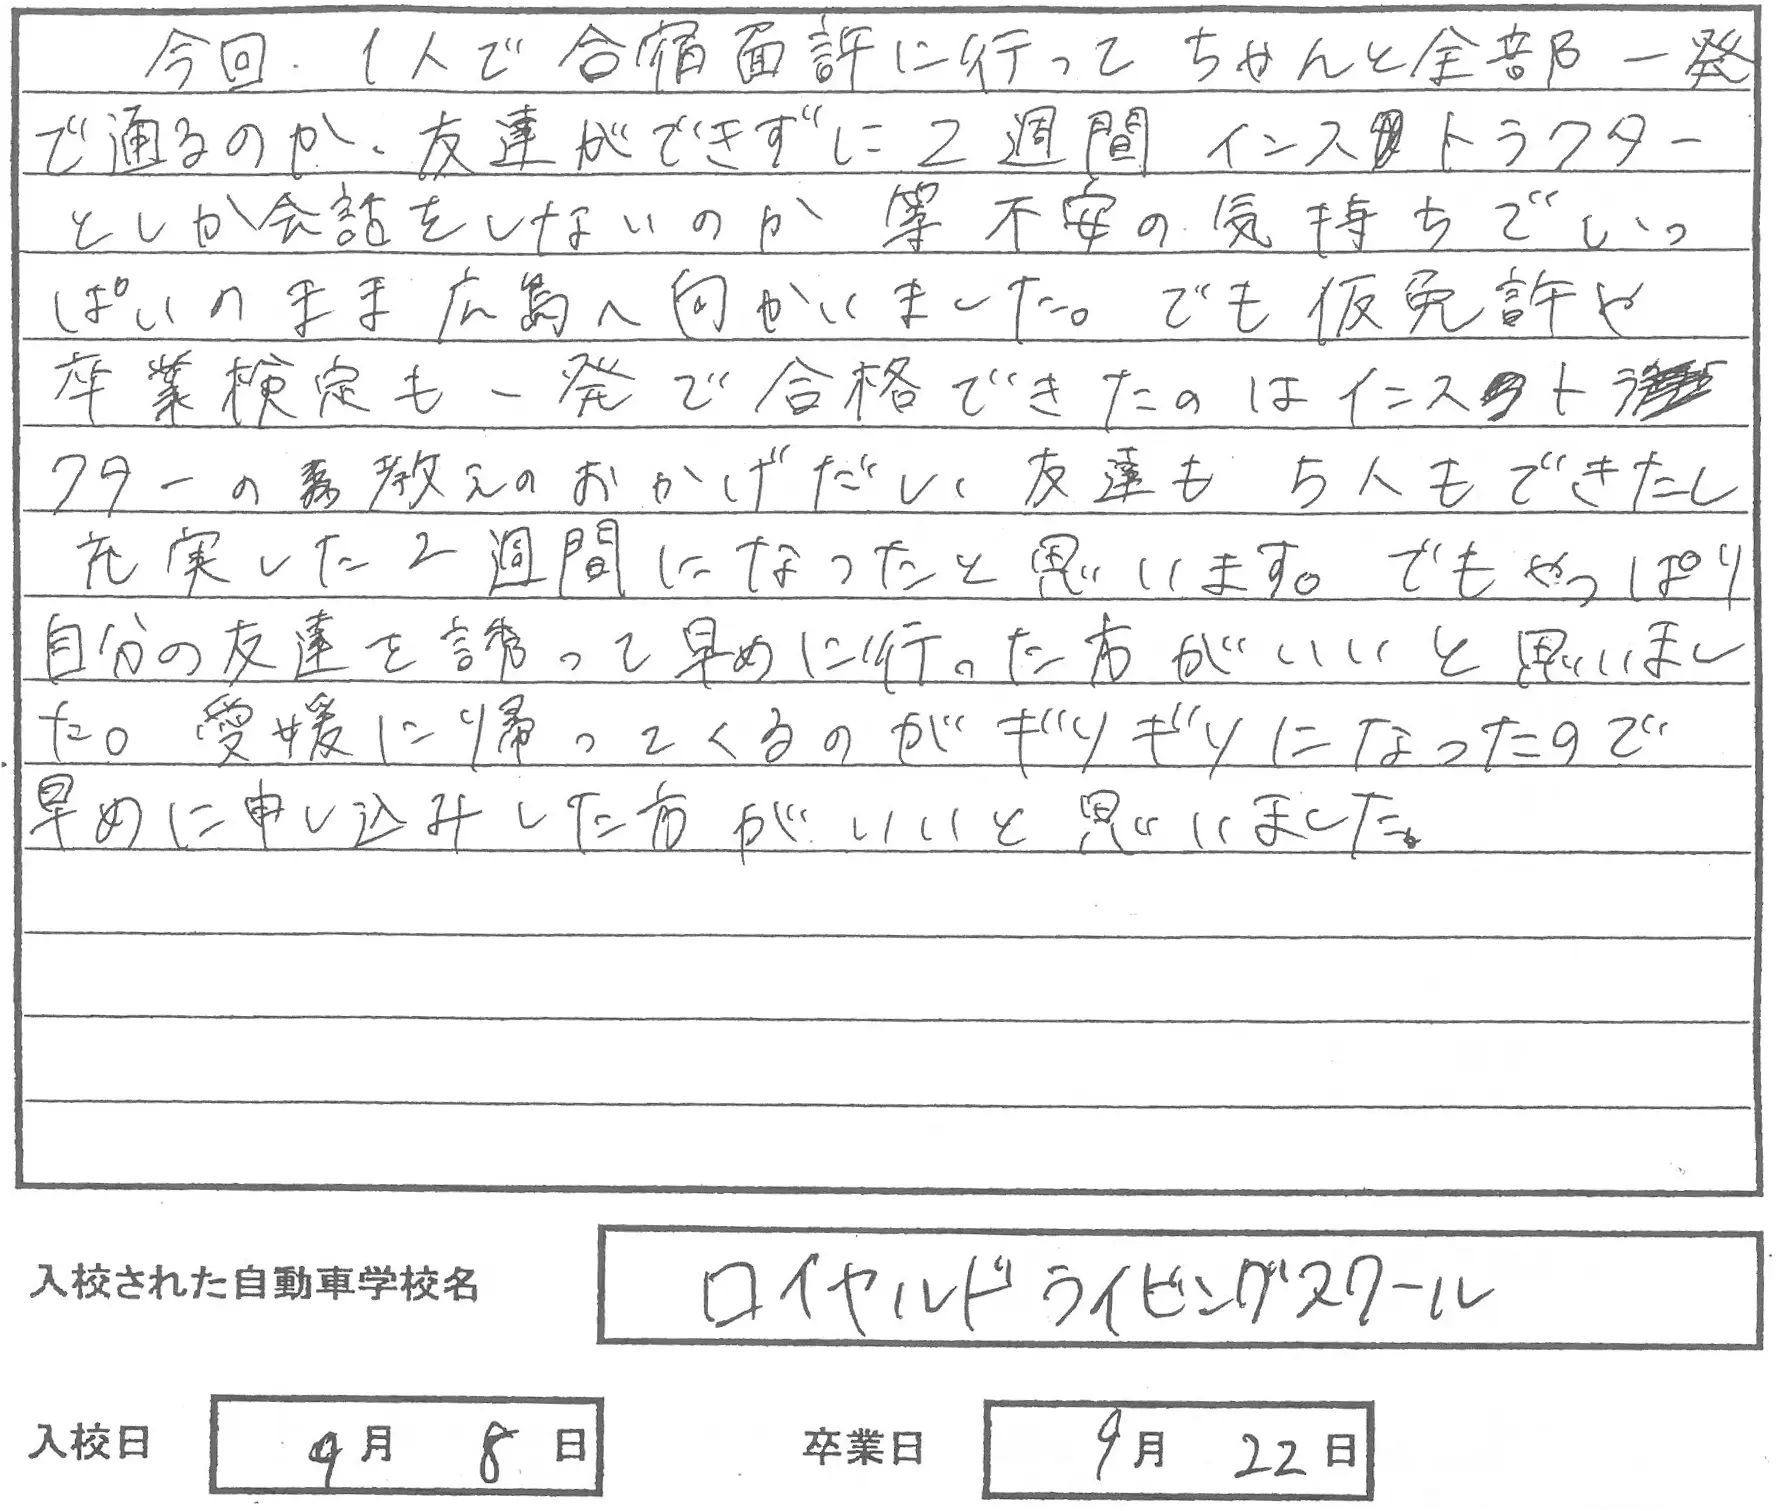 今回、1人で合宿面許に行ってちゃんと全部一発
で通るのか、友達ができずに2週間インストラクター
としか会話をしないのか等不安の気持ちでいっ
ぱいのまま広島へ向かいました。でも仮免許や
卒業検定も一発で合格できたのはインストラ
クターの教えのおかげだし、友達も5人もできたし
充実した2週間になったと思います。でもやっぱり
自分の友達を誘って早めに行った方がいいと思いまし
た。愛媛に帰ってくるのがギリギリになったので
早めに申し込みした方がいいと思いました。
入校された自動車学校名 ロイヤルドライビングスクール
入校日 9月 8日 卒業日 9月 22日